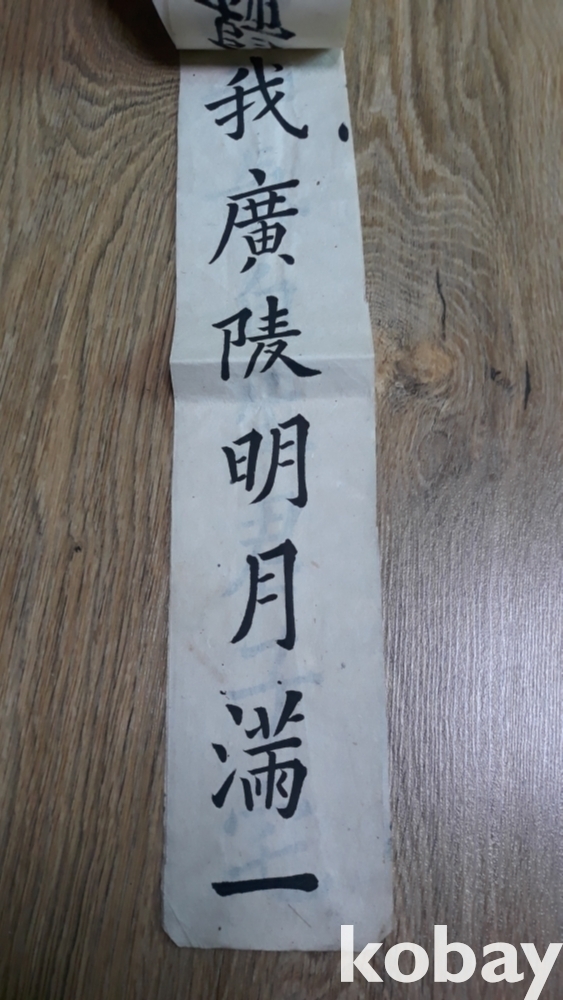 我廣陵明月滿一
kobay